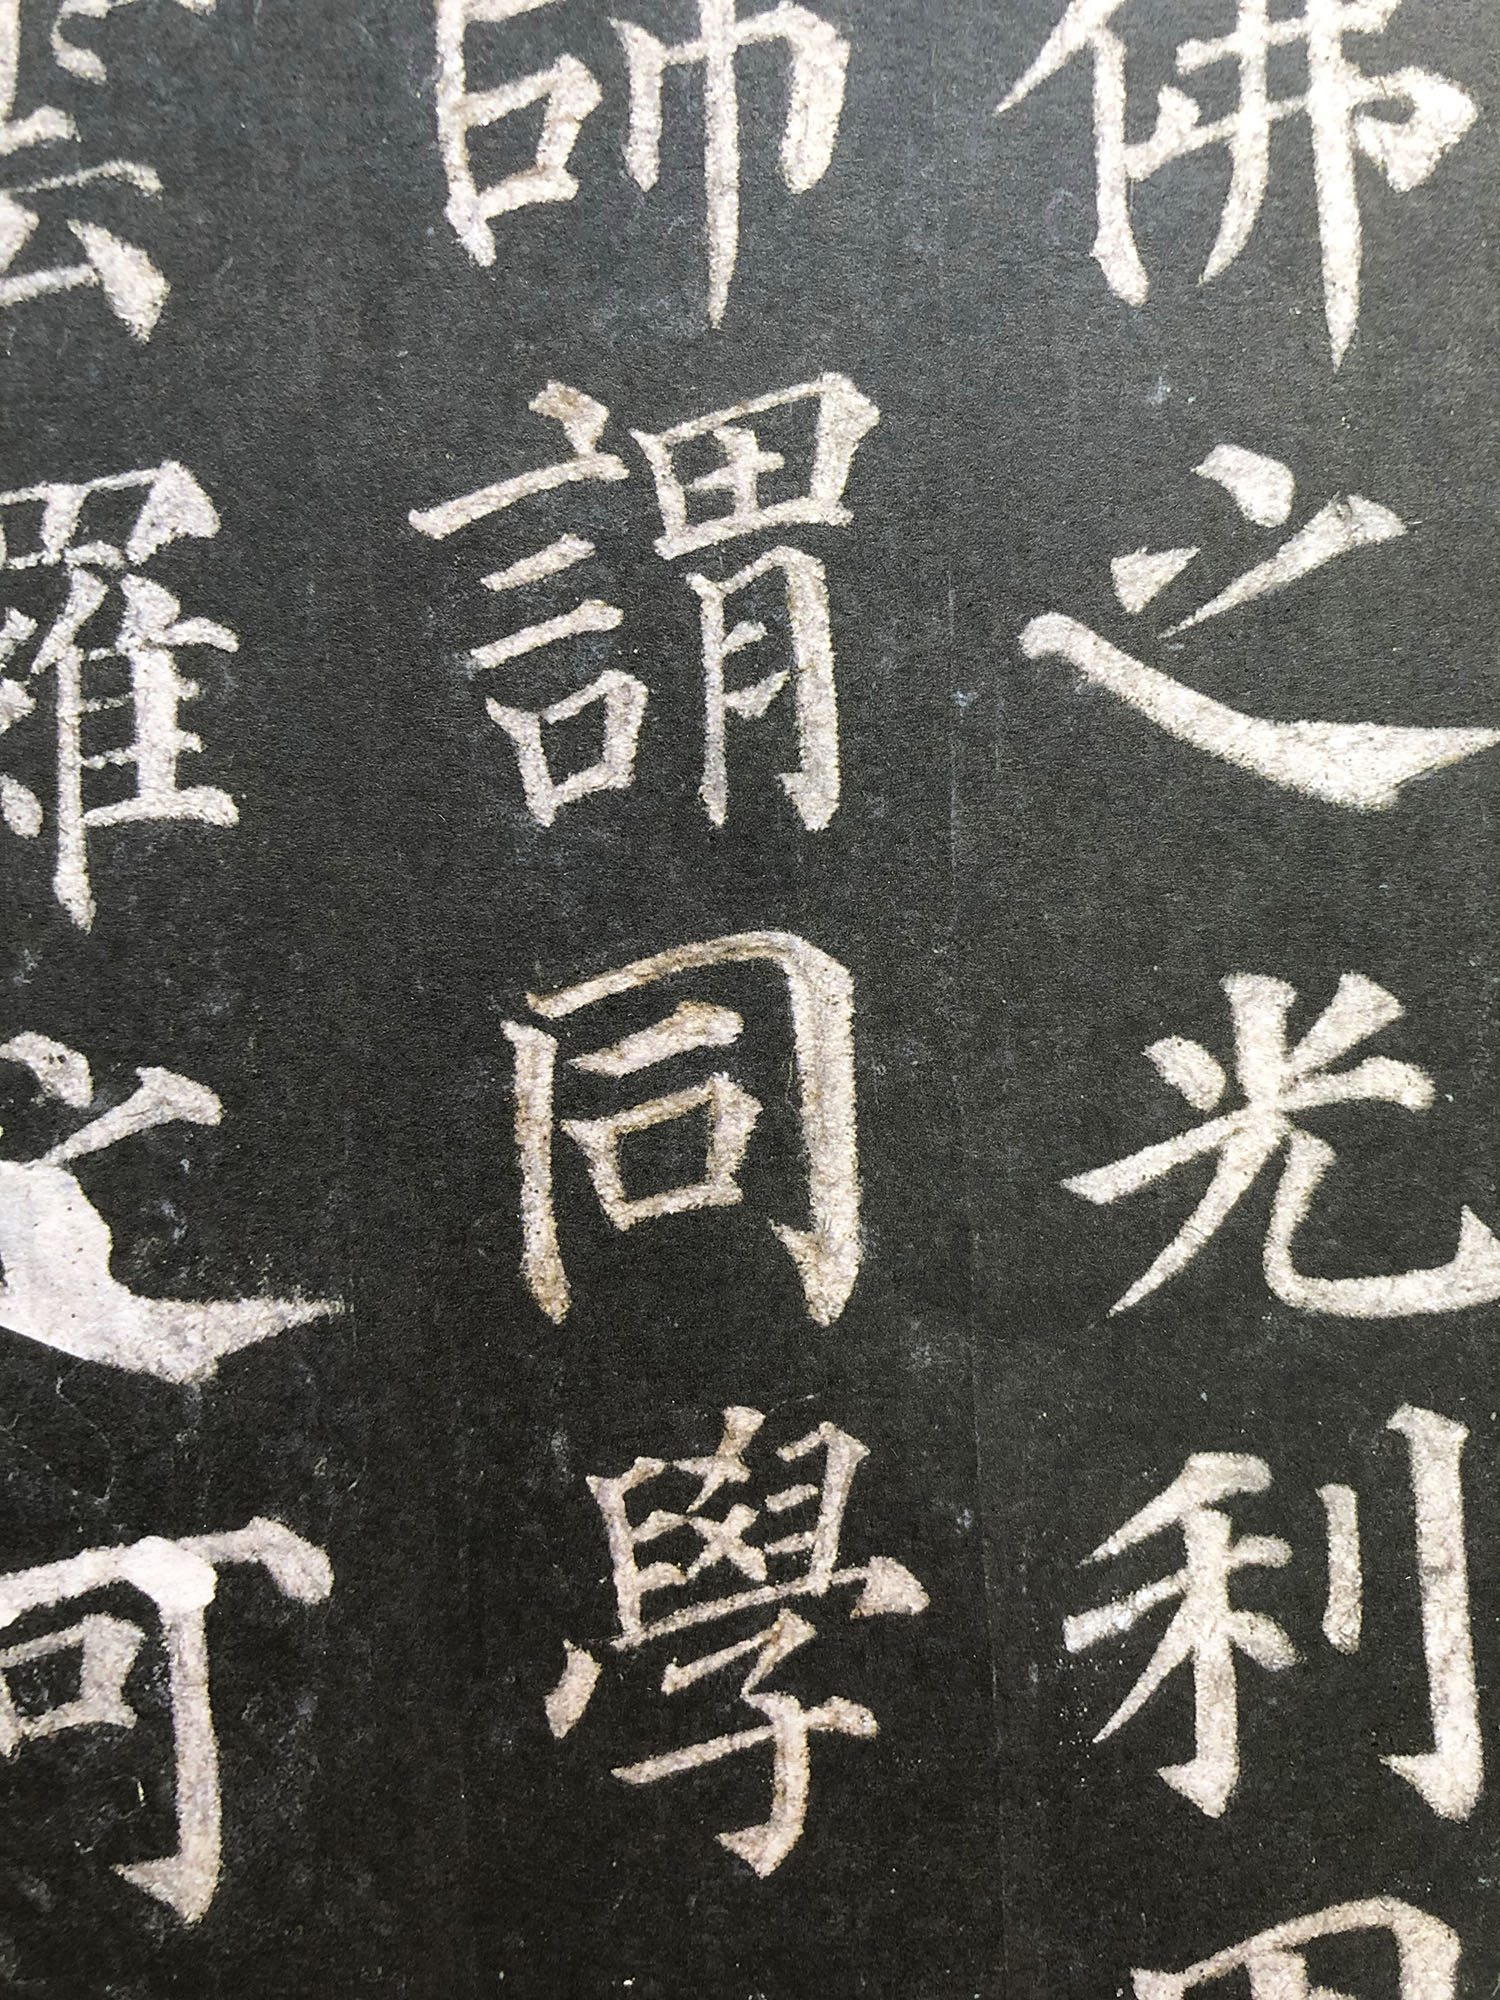 佛之光利
師謂同學
曇羅之可